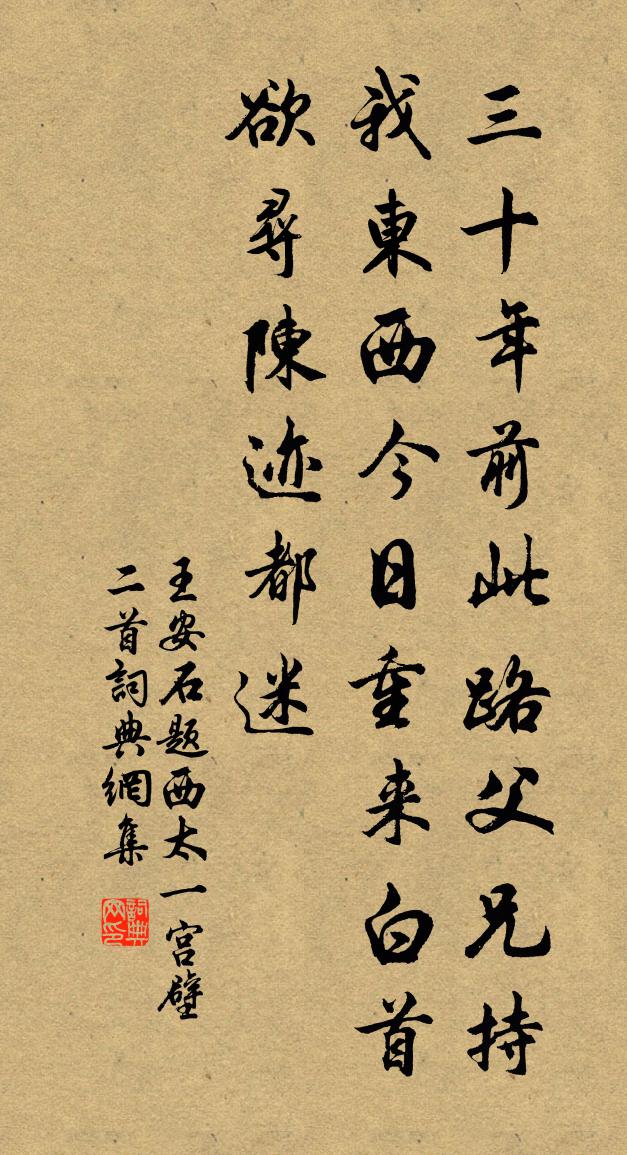 三十年前此路父兄持
我東西今日重来白首
欲尋陳迹都迷
王安石题西太一宫壁
二首詞典網集
詞典网印